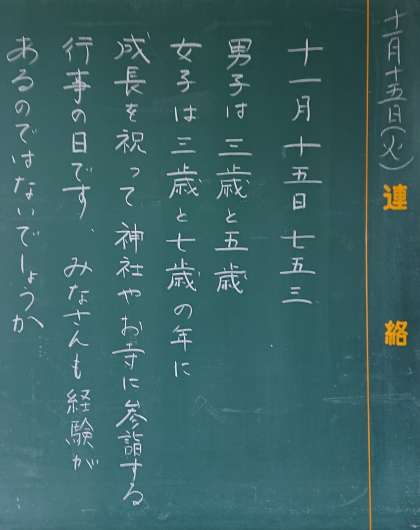 十一月十五日(火)
連絡
十一月十五日七五三
男子は三歳と五歳
女子は三歳と七歳の年に
成長を祝って神社やお寺に参詣する
行事の日です、みなさんも経験が
あるのではないでしょうか